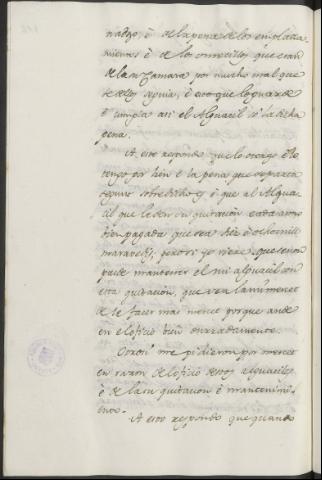 nadgo, è de la pena de los emplaza
mientos è de los omecillos que eran
de la mi Camara por mucho mal que
se dello seguia, è esto que lo guarde
è cumpla asi el Alguacil so la dicha
pena.
A esto respondo que lo otorgo è lo
tengo por bien è la pena que
sobredicho es è que al Algua
cil que le den su quitacion cada anno
bien pagada que sea diez è ocho mill
maravedis, pero si yo viere que se non
puede mantener el mi alguacil con
esta quitacion, que vea la mi merced
de le facer mas merced porque ande
en el oficio bien onradamente.
Otrosi me pidieron por merced
en razon del oficio de los alguaciles
è de la su quitacion è mantenimi
ento.
A esto respondo que quando